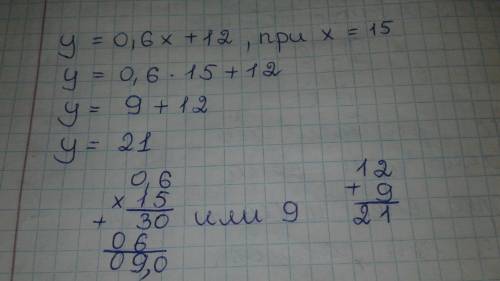 y = 0,6x + 12, при x = 15
y = 0,6 · 15 + 12
y = 9 + 12
y = 21
0,6
× 15
+ 30 или 9
06
09,0
12
+ 9
21